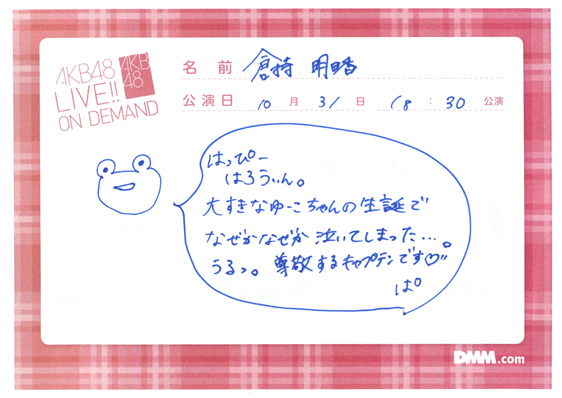 AKB48
LIVE!!
ON DEMAND
AKB
48
名 前 倉持 明日香
公演日 10 月 31 日 18 : 30 公演
はっぴー
はろうぃん。
大すきなゆーこちゃんの生誕で
なぜかなぜか泣いてしまった…。
うるっ。尊敬するキャプテンです♡"
ぱ°
DMM.com